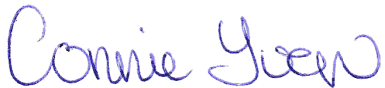 Connie Yuen